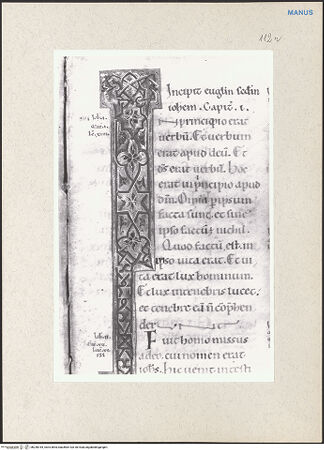 MANUS
112v
Incipit euglm scdm
iohem. Capit. i.
principio erat
uerbu. Et uerbum
erat apud deu. Et
ds erat uerbu. Hoc
erat in principio apud
dm. Omia p ipsum
facta sunt. et sine
ipso factu e nichil.
Quod factu est. in
ipso uita erat. Et ui
ta erat lux hominum.
Et lux in tenebris lucet.
et tenebre ea n cophen
der
Fuit homo missus
a deo. cui nomen erat
iohs. hic uenit in testi